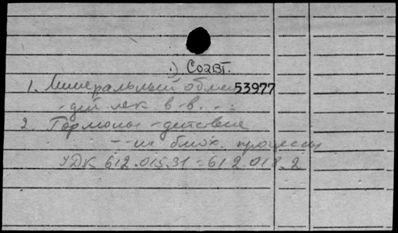 1) СОАВТ.
1. Минеральный обмен 53977
- дей лек. в-в.
2. Гормоны - действие
- " - на биох. процессы
УДК 612.015.31 = 612.018.2